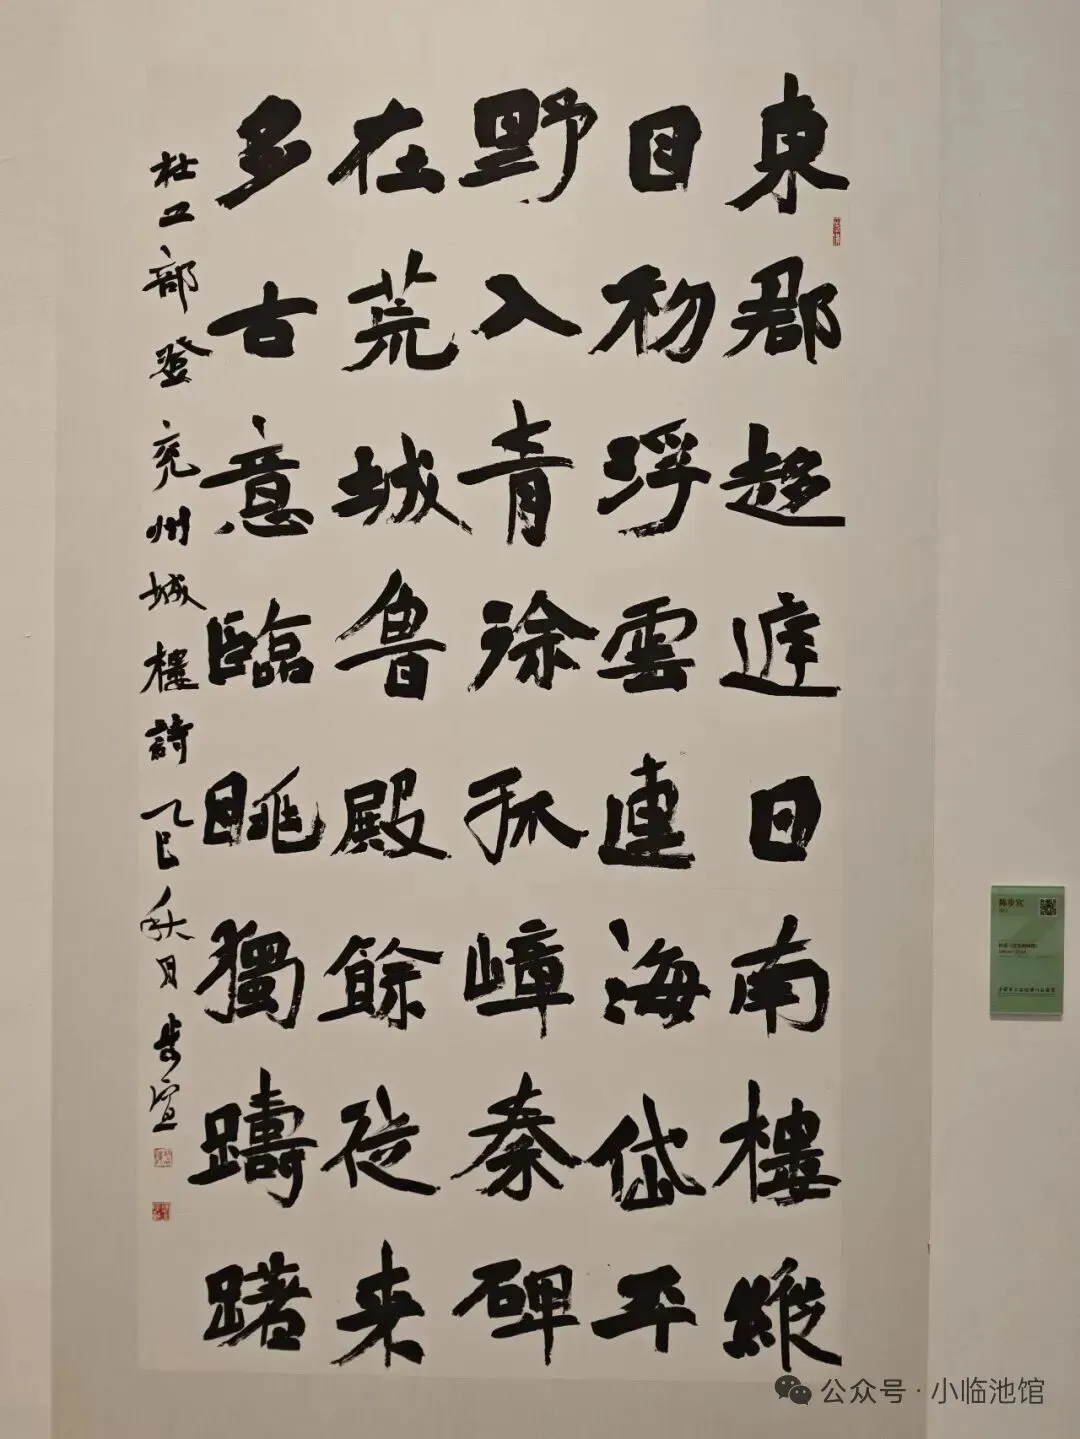 東郡趍庭日南樓縱
目初浮雲連海岱平
野入青徐孤嶂秦碑
在荒城魯殿餘從来
多古意臨眺獨躊躇
杜工部登兖州城樓詩乙巳秋月步宣
公众号·小临池馆